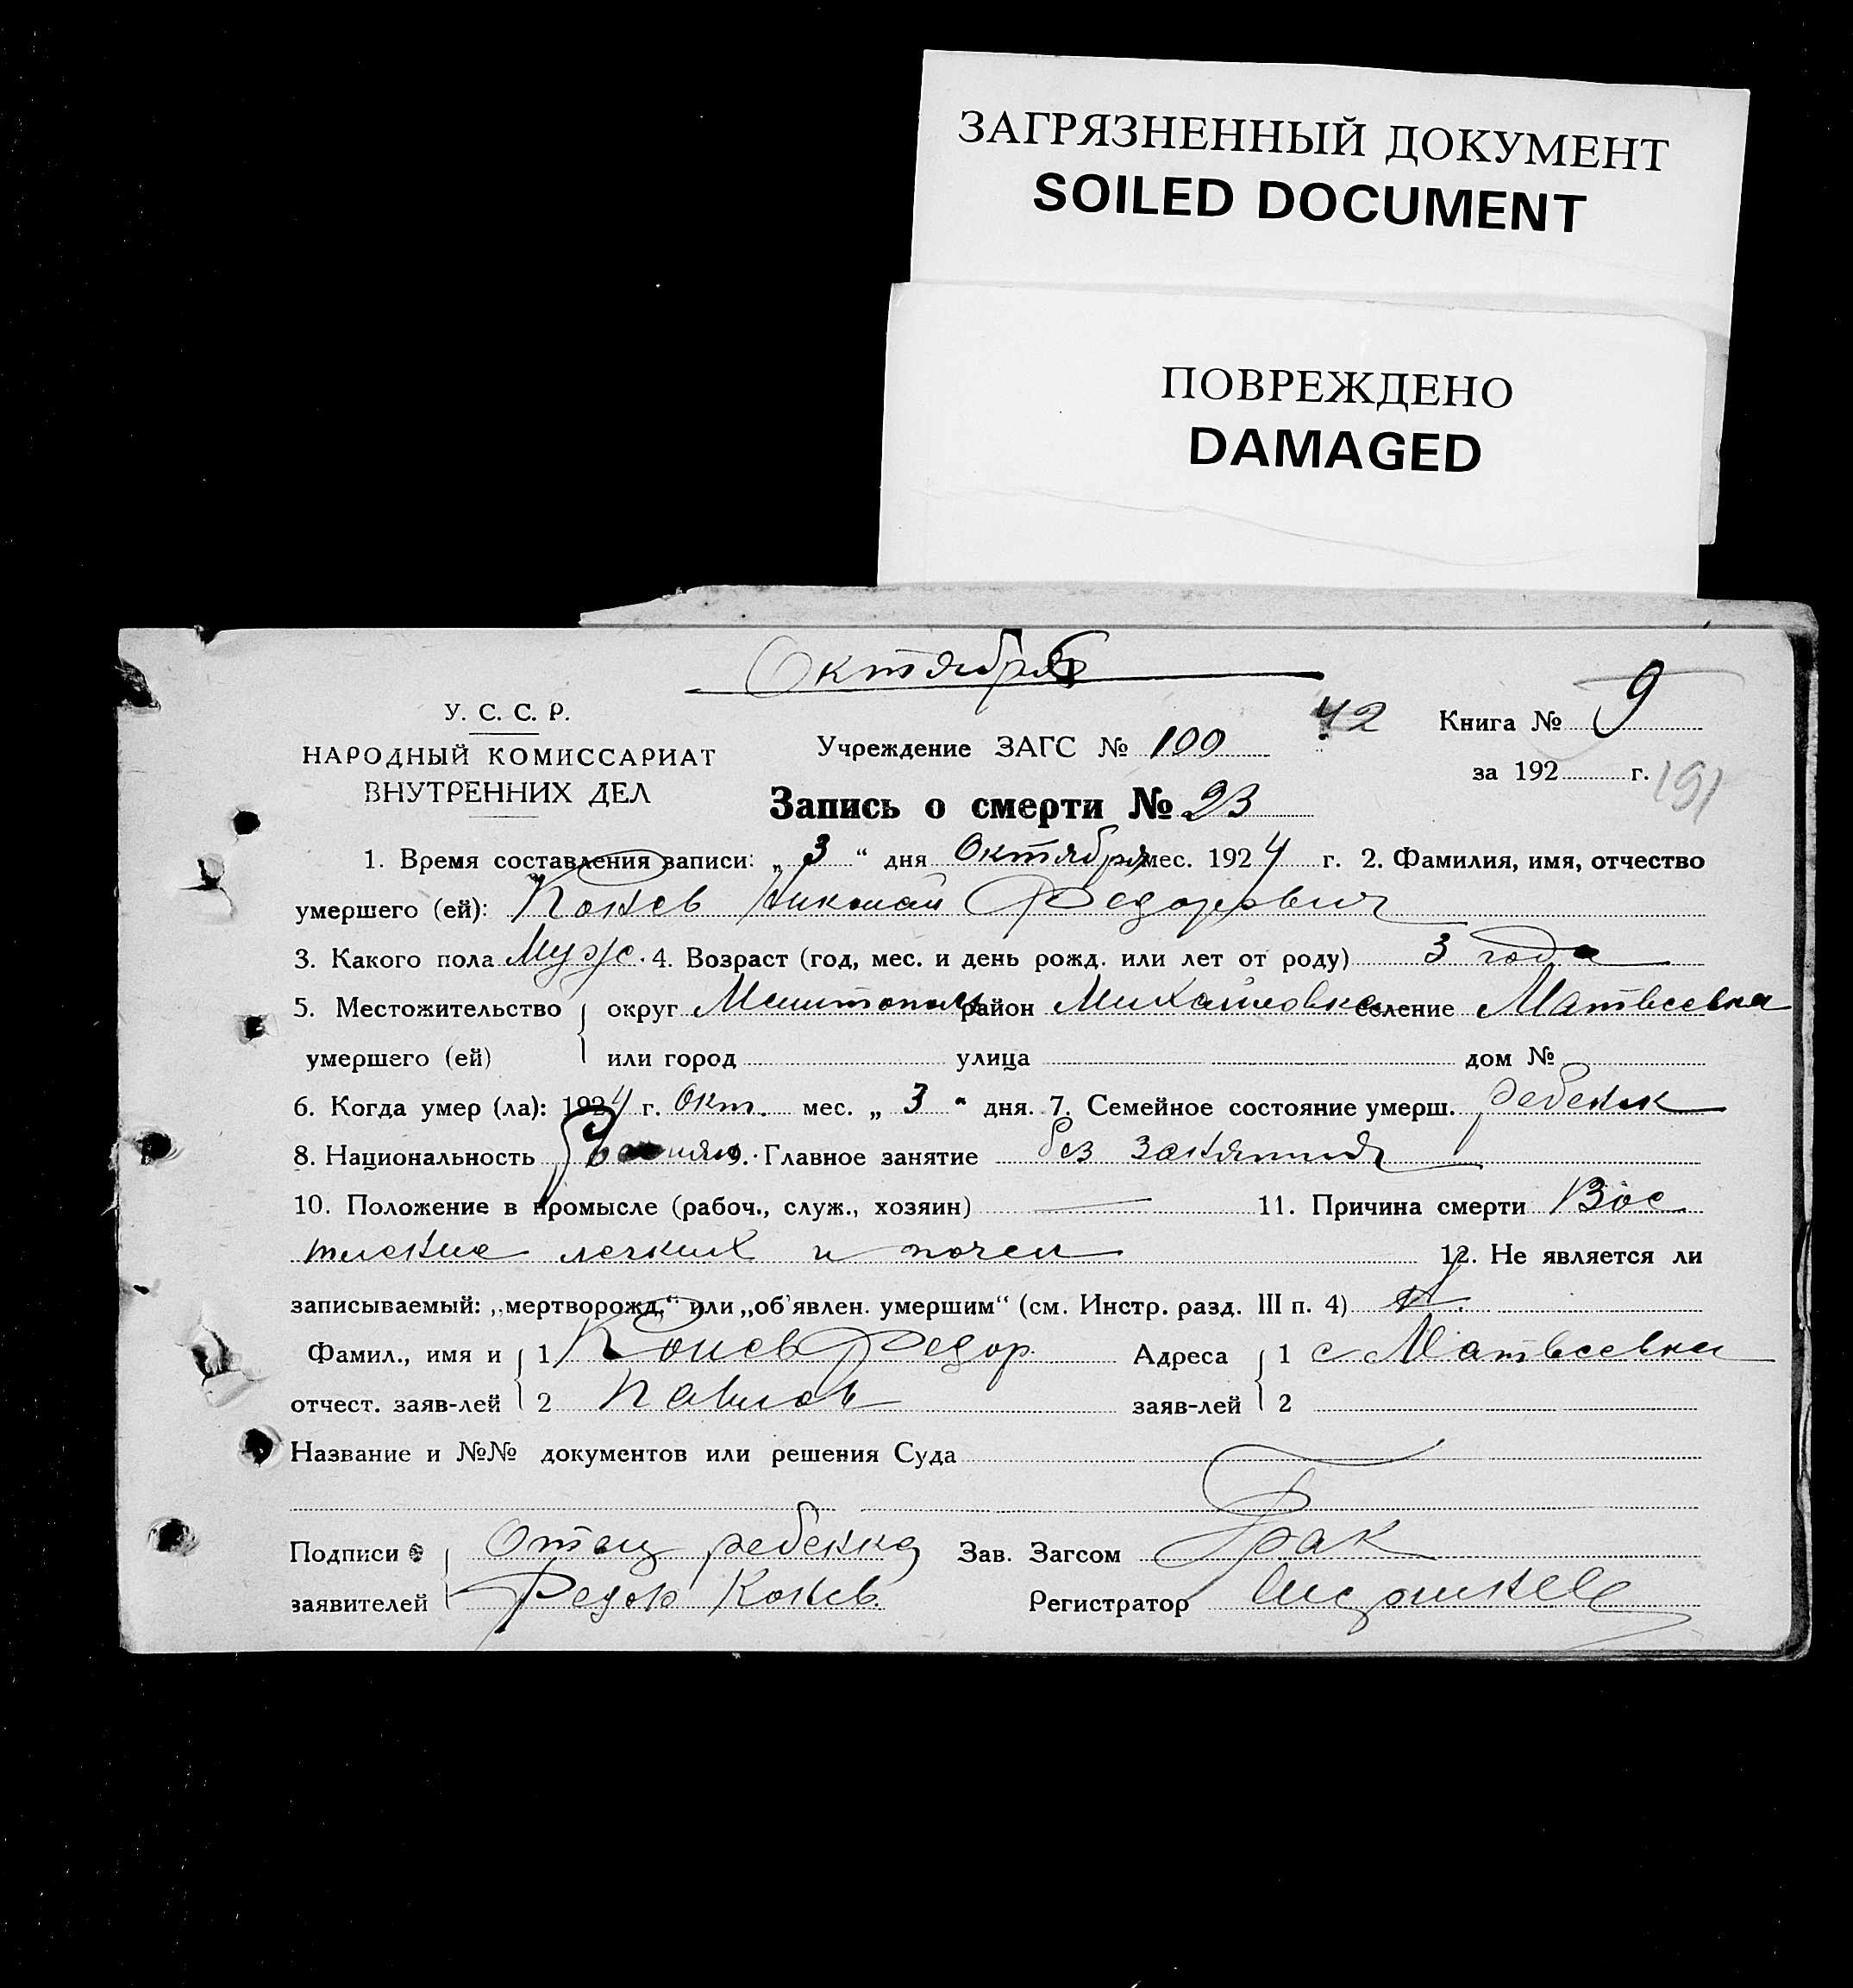 ЗАГРЯЗНЕННЫЙ ДОКУМЕНТ
SOILED DOCUMENT
ПОВРЕЖДЕНО
DAMAGED
Октябрь
У. С. С. Р.
НАРОДНЫЙ КОМИССАРИАТ
ВНУТРЕННИХ ДЕЛ
Учреждение ЗАГС № 100 42
Книга № 9
за 192 г. 191
Запись о смерти № 23
1. Время составления записи: „ 3 “ дня Октября мес. 1924 г. 2. Фамилия, имя, отчество
умершего (ей): Конев Николай Федорович
3. Какого пола Муж. 4. Возраст (год, мес. и день рожд. или лет от роду) 3 года
5. Местожительство округ Мелитополь район Михайловка селение Матвеевка
умершего (ей) или город улица дом №
6. Когда умер (ла): 1924 г. Окт. мес. „ 3 “ дня. 7. Семейное состояние умерш. ребенок
8. Национальность 9. Главное занятие без занятия
10. Положение в промысле (рабоч., служ., хозяин) — 11. Причина смерти Вос
пление легких и почек 12. Не является ли
записываемый: „мертворожд.“ или „об'явлен. умершим“ (см. Инстр. разд. III п. 4)
Фамил., имя и 1 Конев Федор Адреса 1 с Матвеевка
отчест. заяв-лей 2 Павлов заяв-лей 2
Название и №№ документов или решения Суда
Подписи Отец ребенка Зав. Загсом
заявителей Федор Конев. Регистратор